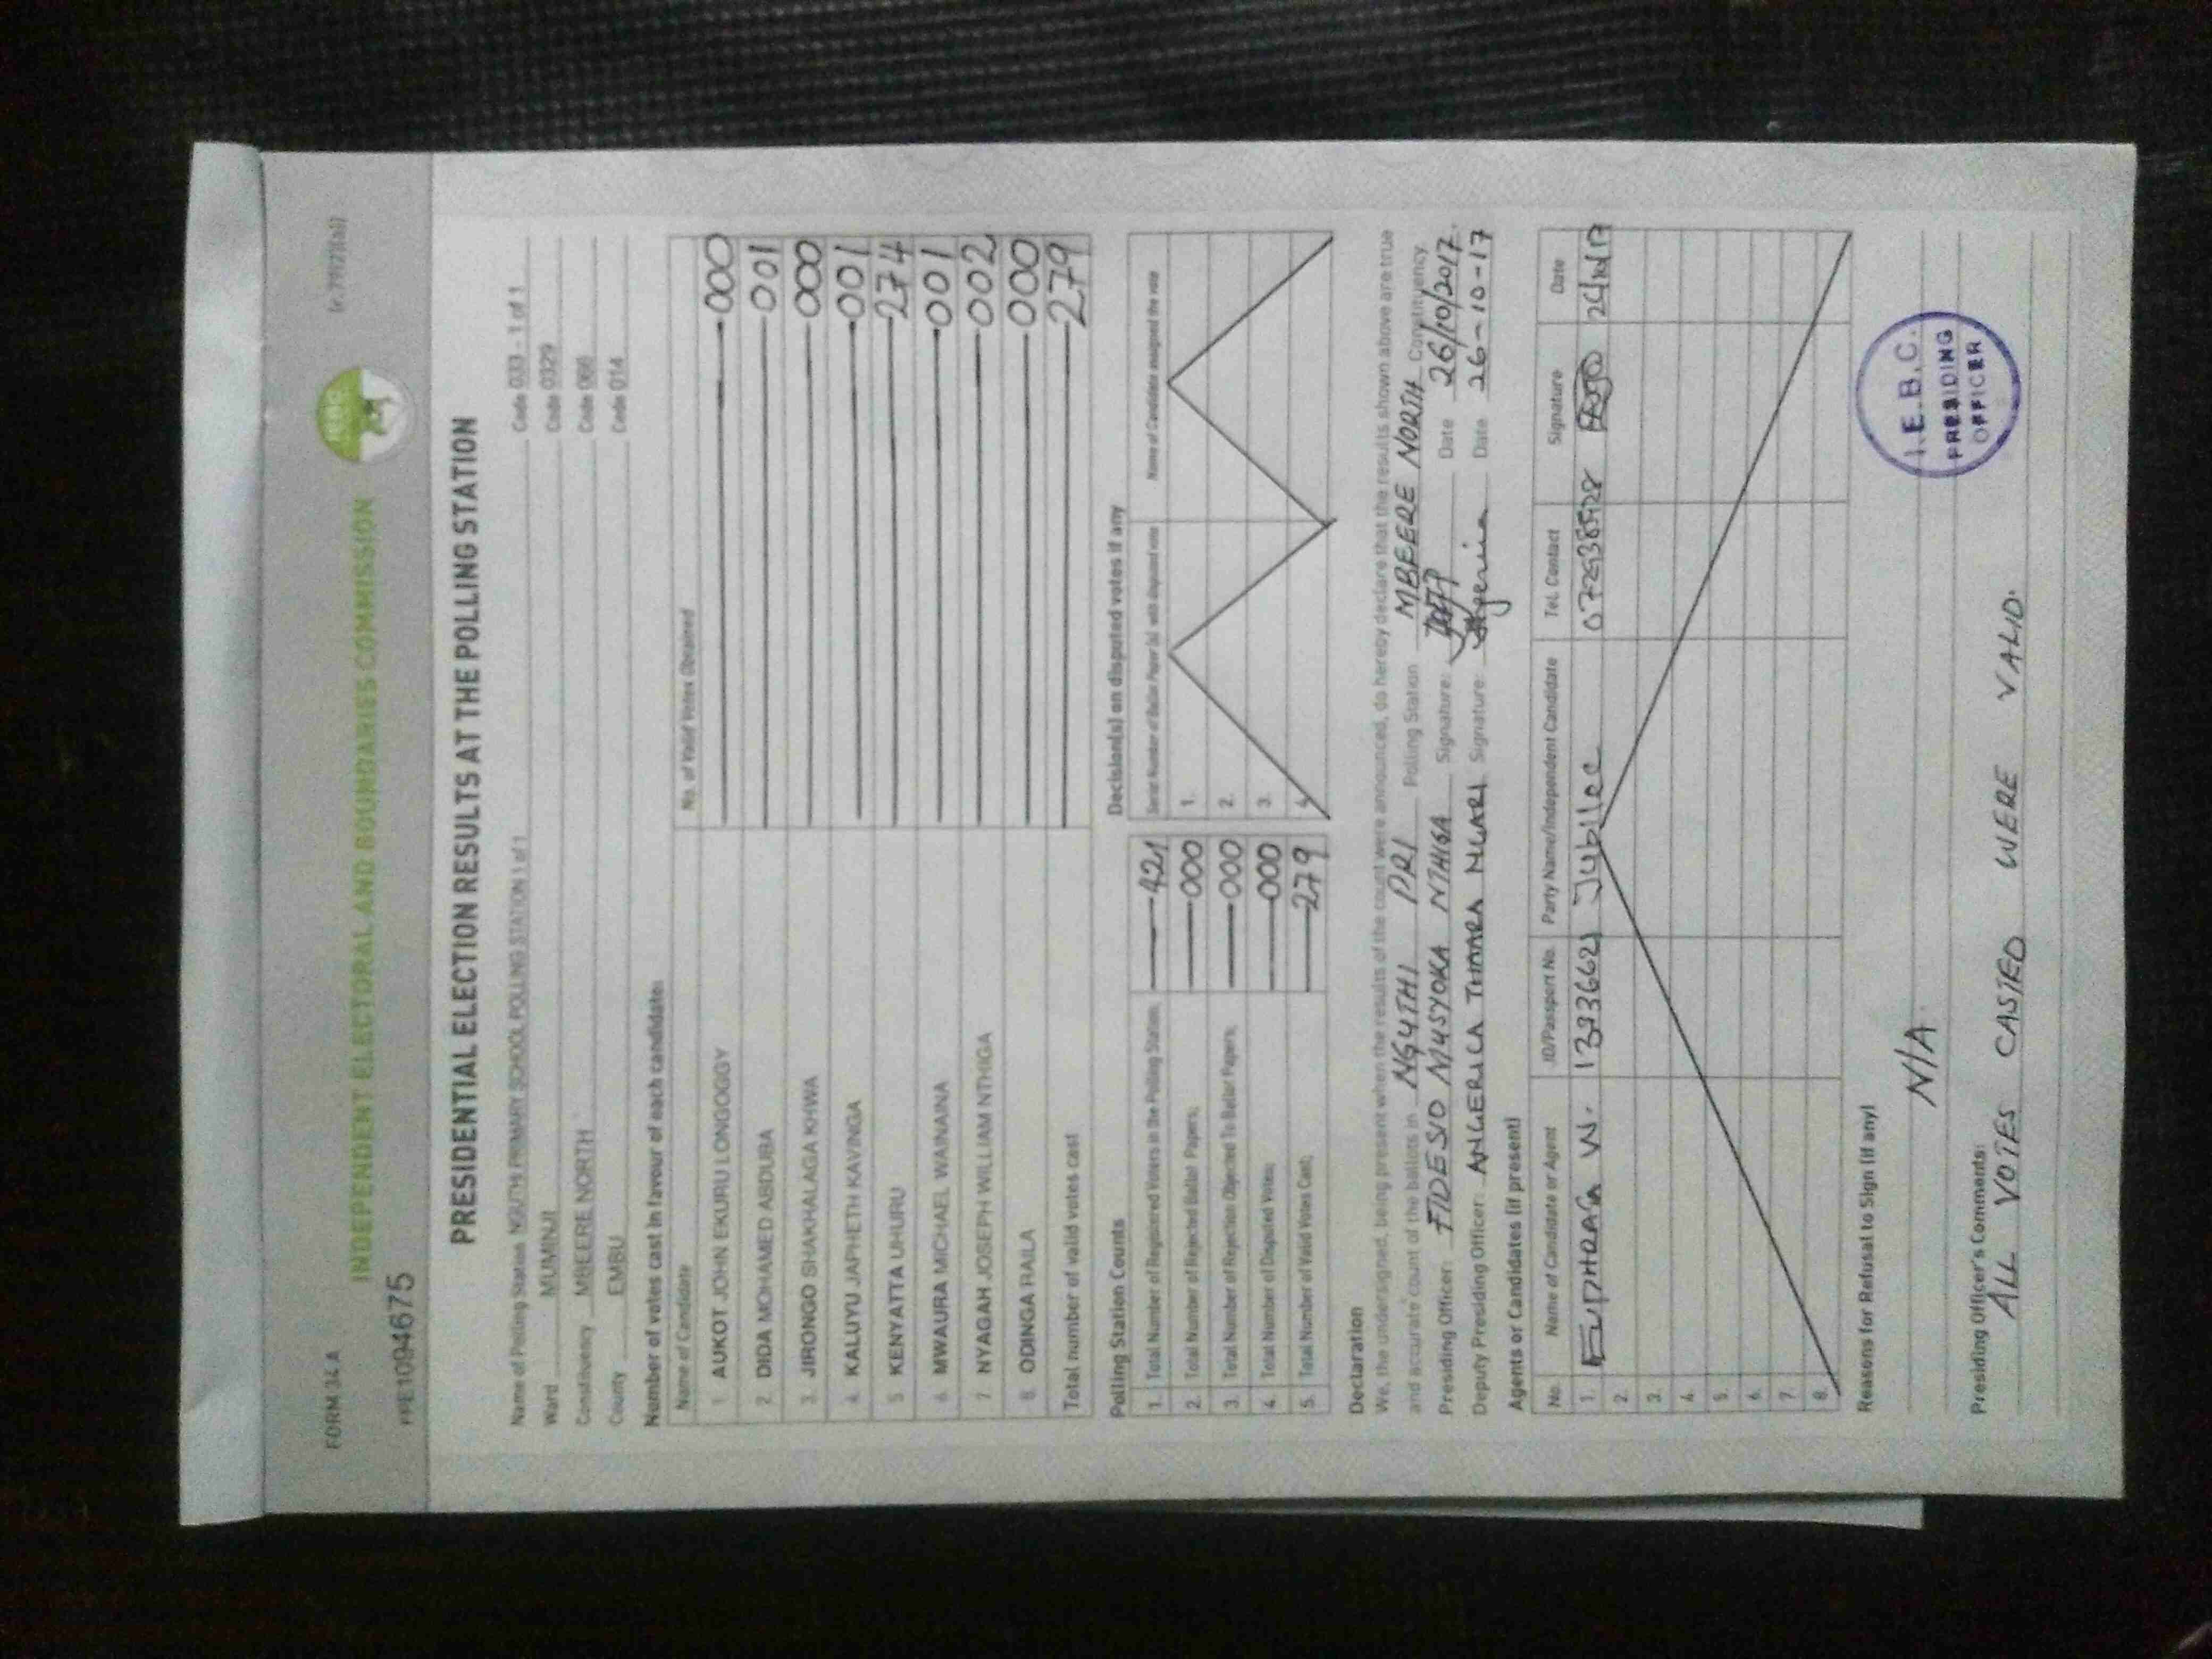 FORM 34A
(r.79(2)(a))
IEBC
INDEPENDENT ELECTORAL AND BOUNDARIES COMMISSION
PRE1094675
PRESIDENTIAL ELECTION RESULTS AT THE POLLING STATION
Name of Polling Station NGUTHI PRIMARY SCHOOL POLLING STATION 1 of 1 Code 033 - 1 of 1
Ward MUMINJI Code 0329
Constituency MBEERE NORTH Code 066
County EMBU Code 014
Number of votes cast in favour of each candidate:
Name of Candidate No. of Valid Votes Obtained
1 AUKOT JOHN EKURU LONGOGGY 000
2. DIDA MOHAMED ABDUBA 001
3. JIRONGO SHAKHALAGA KHWA 000
4. KALUYU JAPHETH KAVINGA 001
5 KENYATTA UHURU 274
6 MWAURA MICHAEL WAINAINA 001
7 NYAGAH JOSEPH WILLIAM NTHIGA 002
8. ODINGA RAILA 000
Total number of valid votes cast 279
Polling Station Counts
1. Total Number of Registered Voters in the Polling Station; 421
2. Total Number of Rejected Ballot Papers; 000
3. Total Number of Rejection Objected To Ballot Papers; 000
4. Total Number of Disputed Votes; 000
5. Total Number of Valid Votes Cast; 279
Decision(s) on disputed votes if any
Serial Number of Ballot Paper (s) with disputed vote Name of Candidate assigned the vote
1.
2.
3.
4.
Declaration
We, the undersigned, being present when the results of the count were announced, do hereby declare that the results shown above are true
and accurate count of the ballots in NGUTHI PRI Polling Station MBEERE NORTH Constituency.
Presiding Officer: FIDESIO MUSYOKA NTHIGA Signature: Date 26/10/2017
Deputy Presiding Officer: ANGERICA THAARA NGARI Signature: Date 26-10-17
Agents or Candidates (if present)
No. Name of Candidate or Agent ID/Passport No. Party Name/Independent Candidate Tel. Contact Signature Date
1. EUPHRAG W. Jubilee
2.
3.
4.
5.
6.
7.
8.
Reasons for Refusal to Sign (if any)
N/A
Presiding Officer's Comments:
ALL VOTES CASTED WERE VALID.
I.E.B.C.
PRESIDING
OFFICER